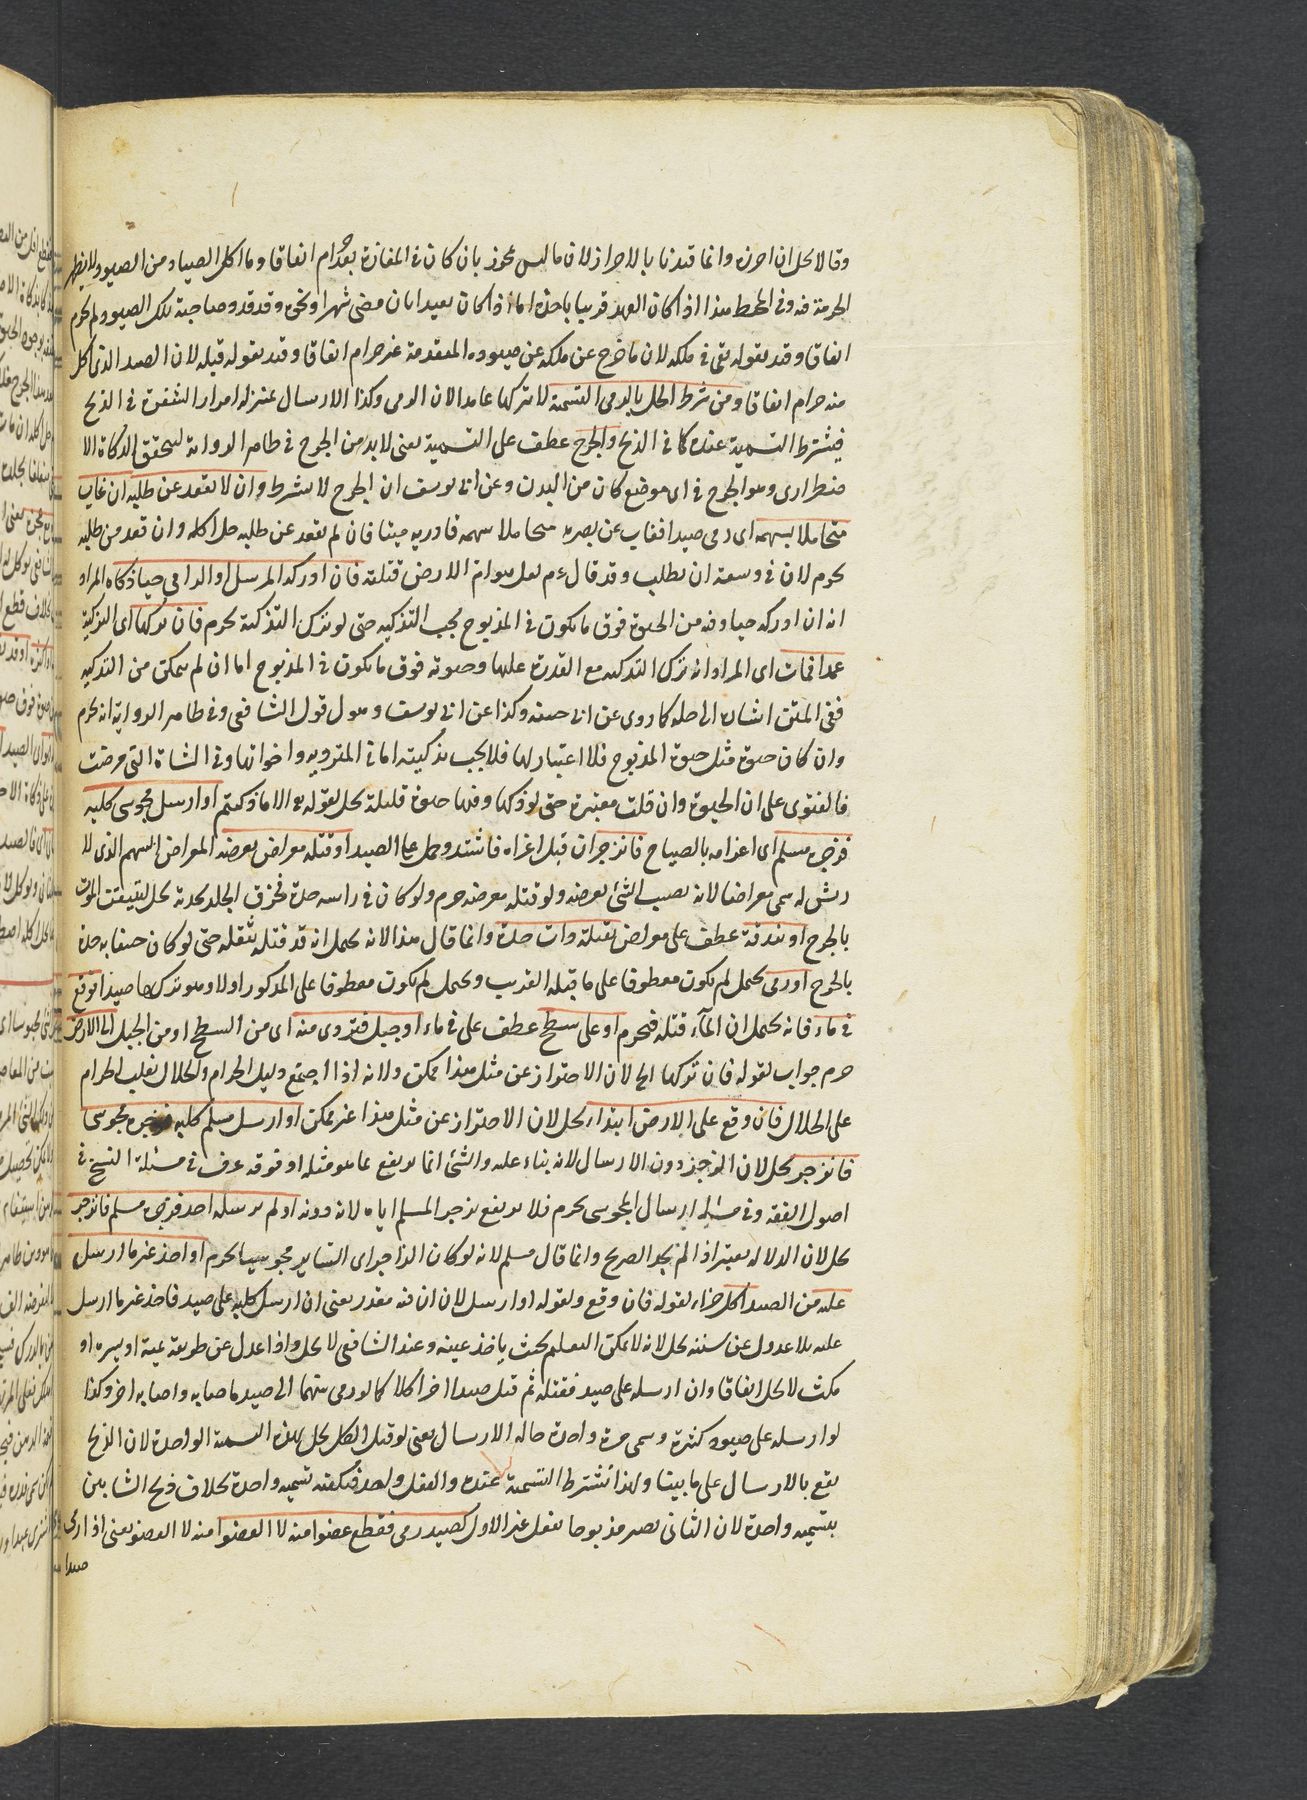 وقالا يحل ان احرزه وانما قيدنا بالاحراز لان ما ليس بمحرز بان كان فى المفازة بعد حرام اتفاقا وما اكل الصياد من الصيود لا يظهر
الحرمة فيه وفى المحيط هذا اذا كان العهد قريبا باخذه اما اذا كان بعيدا بان مضى شهر او نحوه وقد قدد صاحبه تلك الصيود لم يحرم
اتفاقا وقيد بقوله بقى فى ملكه لان ما خرج عن ملكه من صيوده المتقدمة غير حرام اتفاقا وقيد بقوله قبله لان الصيد الذى اكل
منه حرام اتفاقا ومن شرط الحل بالرمى التسمية لا تركها عامدا لان الرمى وكذا الارسال بمنزلة امرار الشفرة فى الذبح
فيشترط التسمية عنده كما فى الذبح والجرح عطف على التسمية يعنى لا بد من الجرح فى ظاهر الرواية ليتحقق الذكاة الا
ضطرارى وهو الجرح فى اى موضع كان من البدن وعن ابى يوسف ان الجرح لا يشترط وان لا يقعد عن طلبه ان غاب
متحاملا بسهمه اى رمى صيدا فغاب عن بصره متحاملا سهمه فادركه ميتا فان لم يقعد عن طلبه حل اكله وان قعد من طلبه
يحرم لان فى وسعه ان يطلب وقد قال ءم لعل هوام الارض قتلته فان ادركه المرسل او الرامى حيا ذكاه المراد
انه ان ادركه حيا وفيه من الحيوة فوق ما يكون فى المذبوح يجب التذكية حتى لو ترك التذكية يحرم فان تركها اى التذكية
عمدا فمات اى المراد انه ترك التذكية مع القدرة عليها وحيوته فوق ما يكون فى المذبوح اما ان لم يتمكن من التذكية
ففى المتن اشارة الى حله كما روى عن ابى حنيفة وكذا عن ابى يوسف وهو قول الشافعى وفى ظاهر الرواية انه يحرم
وان كان حيوته مثل حيوة المذبوح فلا اعتبار لها فلا يجب تذكيته اما فى المتردية واخواتها وفى الشاة التى مرضت
فالفتوى على ان الحيوة وان قلت معتبرة حتى لو ذكها وفيها حيوة قليلة يحل لقوله تع الا ما ذكيتم او ارسل مجوسى كلبه
فزجره مسلم اى اغراه بالصياح فانزجر ان قبل اغراه فاشتد وحمل على الصيد او قتله معراض بعرضه المعراض السهم الذى لا
ريش له سمى معراضا لانه يصيب الشئ بعرضه ولو قتله بعرضه حرم ولو كان فى راسه حدة فخرق الجلد بحدته يحل لتيقنت الموت
بالجرح او بندقة عطف على معراض ثقيلة ذات حدة وانما قال هذا لانه يحتمل انه قد قتله بثقله حتى لو كان خفيفا به حدة
بالجرح او رمى يحتمل لم يكون معطوفا على ما قبله القريب ويحتمل لم يكون معطوفا على المذكور اولا وهو تركها صيدا فوقع
فى ماء فانه يحتمل ان الماء قتله فيحرم او على سطح عطف على فى ماء او جبل فتردى منه اى من السطح او من الجبل الى الارض
حرم جواب لقوله فان تركها الخ لان الاحتراز عن مثل هذا ممكن ولانه اذا اجتمع دليل الحرام والحلال يغلب الحرام
على الحلال فان وقع على الارض ابتداء يحل لان الاحتراز عن مثل هذا غير ممكن او ارسل مسلم كلبه فزجره مجوسى
فانزجر يحل لان الزجر دون الارسال لانه بناء عليه والشئ انما يرتفع بما هو مثله او فوقه عرف فى مسئلة النسخ فى
اصول الفقه وفى مسئلة ارسال المجوسى يحرم فلا يرتفع بزجر المسلم اياه لانه دونه او لم يرسله احد فزجره مسلم فانزجر
يحل لان الدلالة يعتبر اذا لم يجد الصريح وانما قال مسلم لانه لو كان الزاجر مجوسيا يحرم او اخذ غير ما ارسل
عليه من الصيد اكل جزاء لقوله فان وقع ولقوله او ارسل لان ان فيه مقدر يعنى ان ارسل كلبه على صيد فاخذ غير ما ارسل
عليه بلا عدول عن سننه يحل لانه لا يمكن التعليم بحيث ياخذ عينه وعند الشافعى لا يحل واذا عدل عن طريقه يمنة او يسرة او
مكث لا يحل اتفاقا وان ارسله على صيد فقتله ثم قتل صيدا اخر اكلا كما لو رمى سهما الى صيد فاصابه واصابه اخر وكذا
لو ارسله على صيود كثيرة وسمى مرة واحدة حالة الارسال يعنى لو قتل الكل يحل بهذه التسمية الواحدة لان الذبح
يقع بالارسال على ما بينا ولهذا تشترط التسمية عنده والفعل واحد فتكفيه تسمية واحدة بخلاف ذبح الشاتين
بتسمية واحدة لان الثانى يصير مذبوحا بفعل غير الاول كصيد رمى فقطع عضوا منه لا العضو منه لا العضو يعنى اذا رمى
صيدا